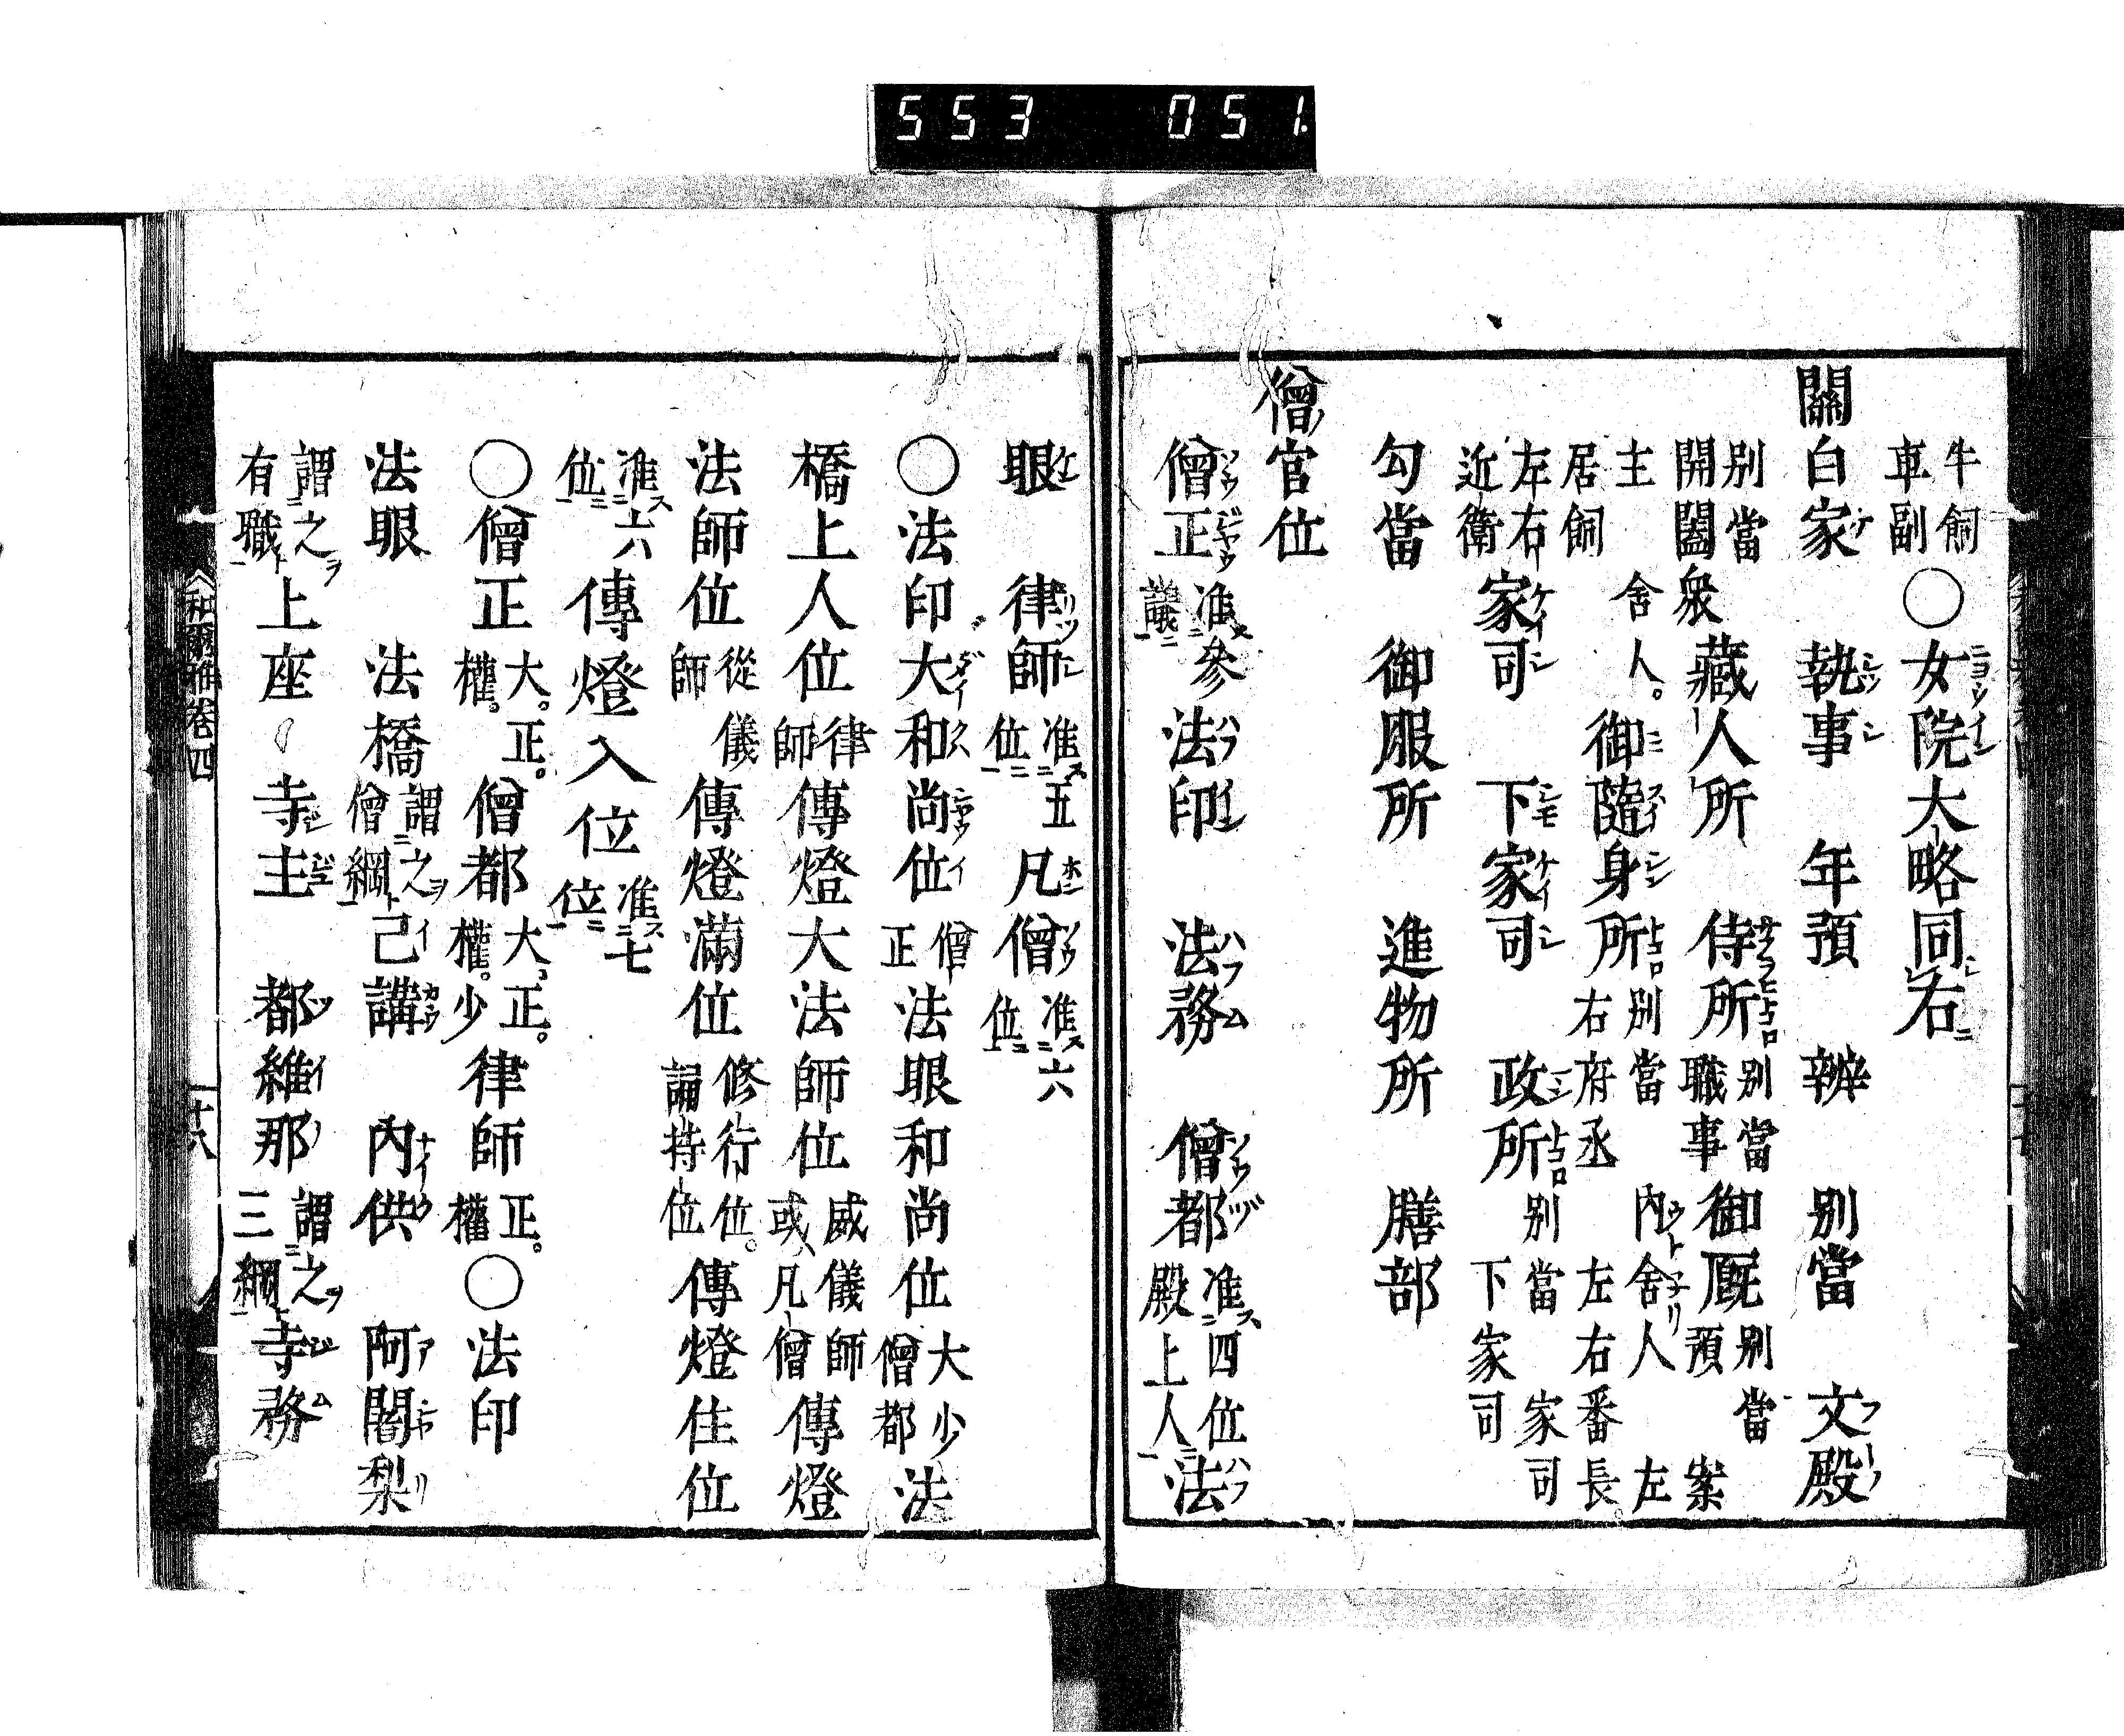 553 051.
牛飼車副○女院大略同右
關白家 執事 年預 辨 別當 文殿
別當開闔衆 藏人所 侍所別當職事 御厩別當預 案
主居飼舍人。 御隨身所別當右府丞 內舍人 左左右番長
左右近衛 家司 下家司 政所別當家司下家司
勾當 御服所 進物所 膳部
僧官位
僧正准參議 法印 法務 僧都准四位殿上人 法
眼 律師准五位 凡僧准六位
○法印大和尚位僧正 法眼和尚位大少僧都 法
橋上人位律師 傳燈大法師位威儀師或凡僧 傳燈
法師位從儀師 傳燈滿位修行位。誦持位 傳燈住位
准六位 傳燈入位准七位
○僧正大。正。權。 僧都大。正。權。少 律師正。權 ○法印
法眼 法橋謂之僧綱 已講 內供 阿闍梨
謂之有職 上座 寺主 都維那謂之三綱 寺務
和爾雅卷四 十八